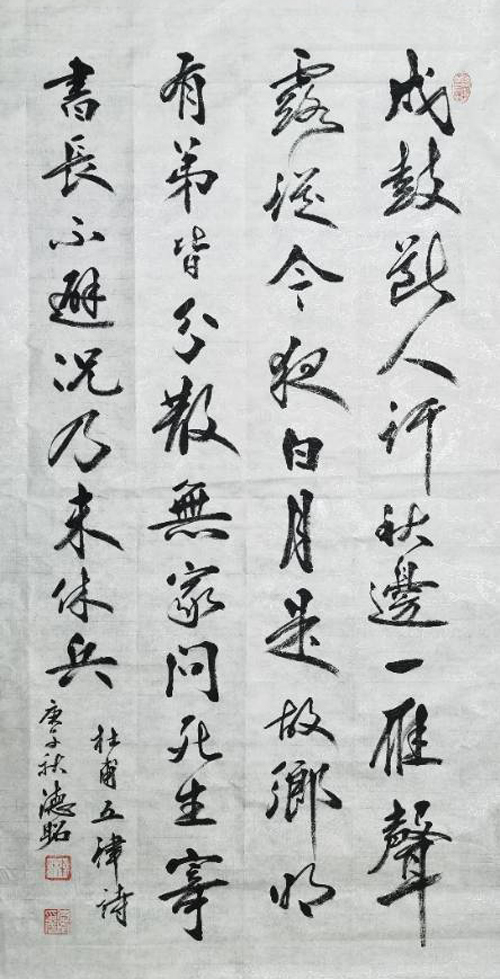 戍鼓斷人行秋邊一雁聲
露從今夜白月是故鄉明
有弟皆分散無家問死生寄
書長不避況乃未休兵
杜甫五律詩
庚子秋德昭